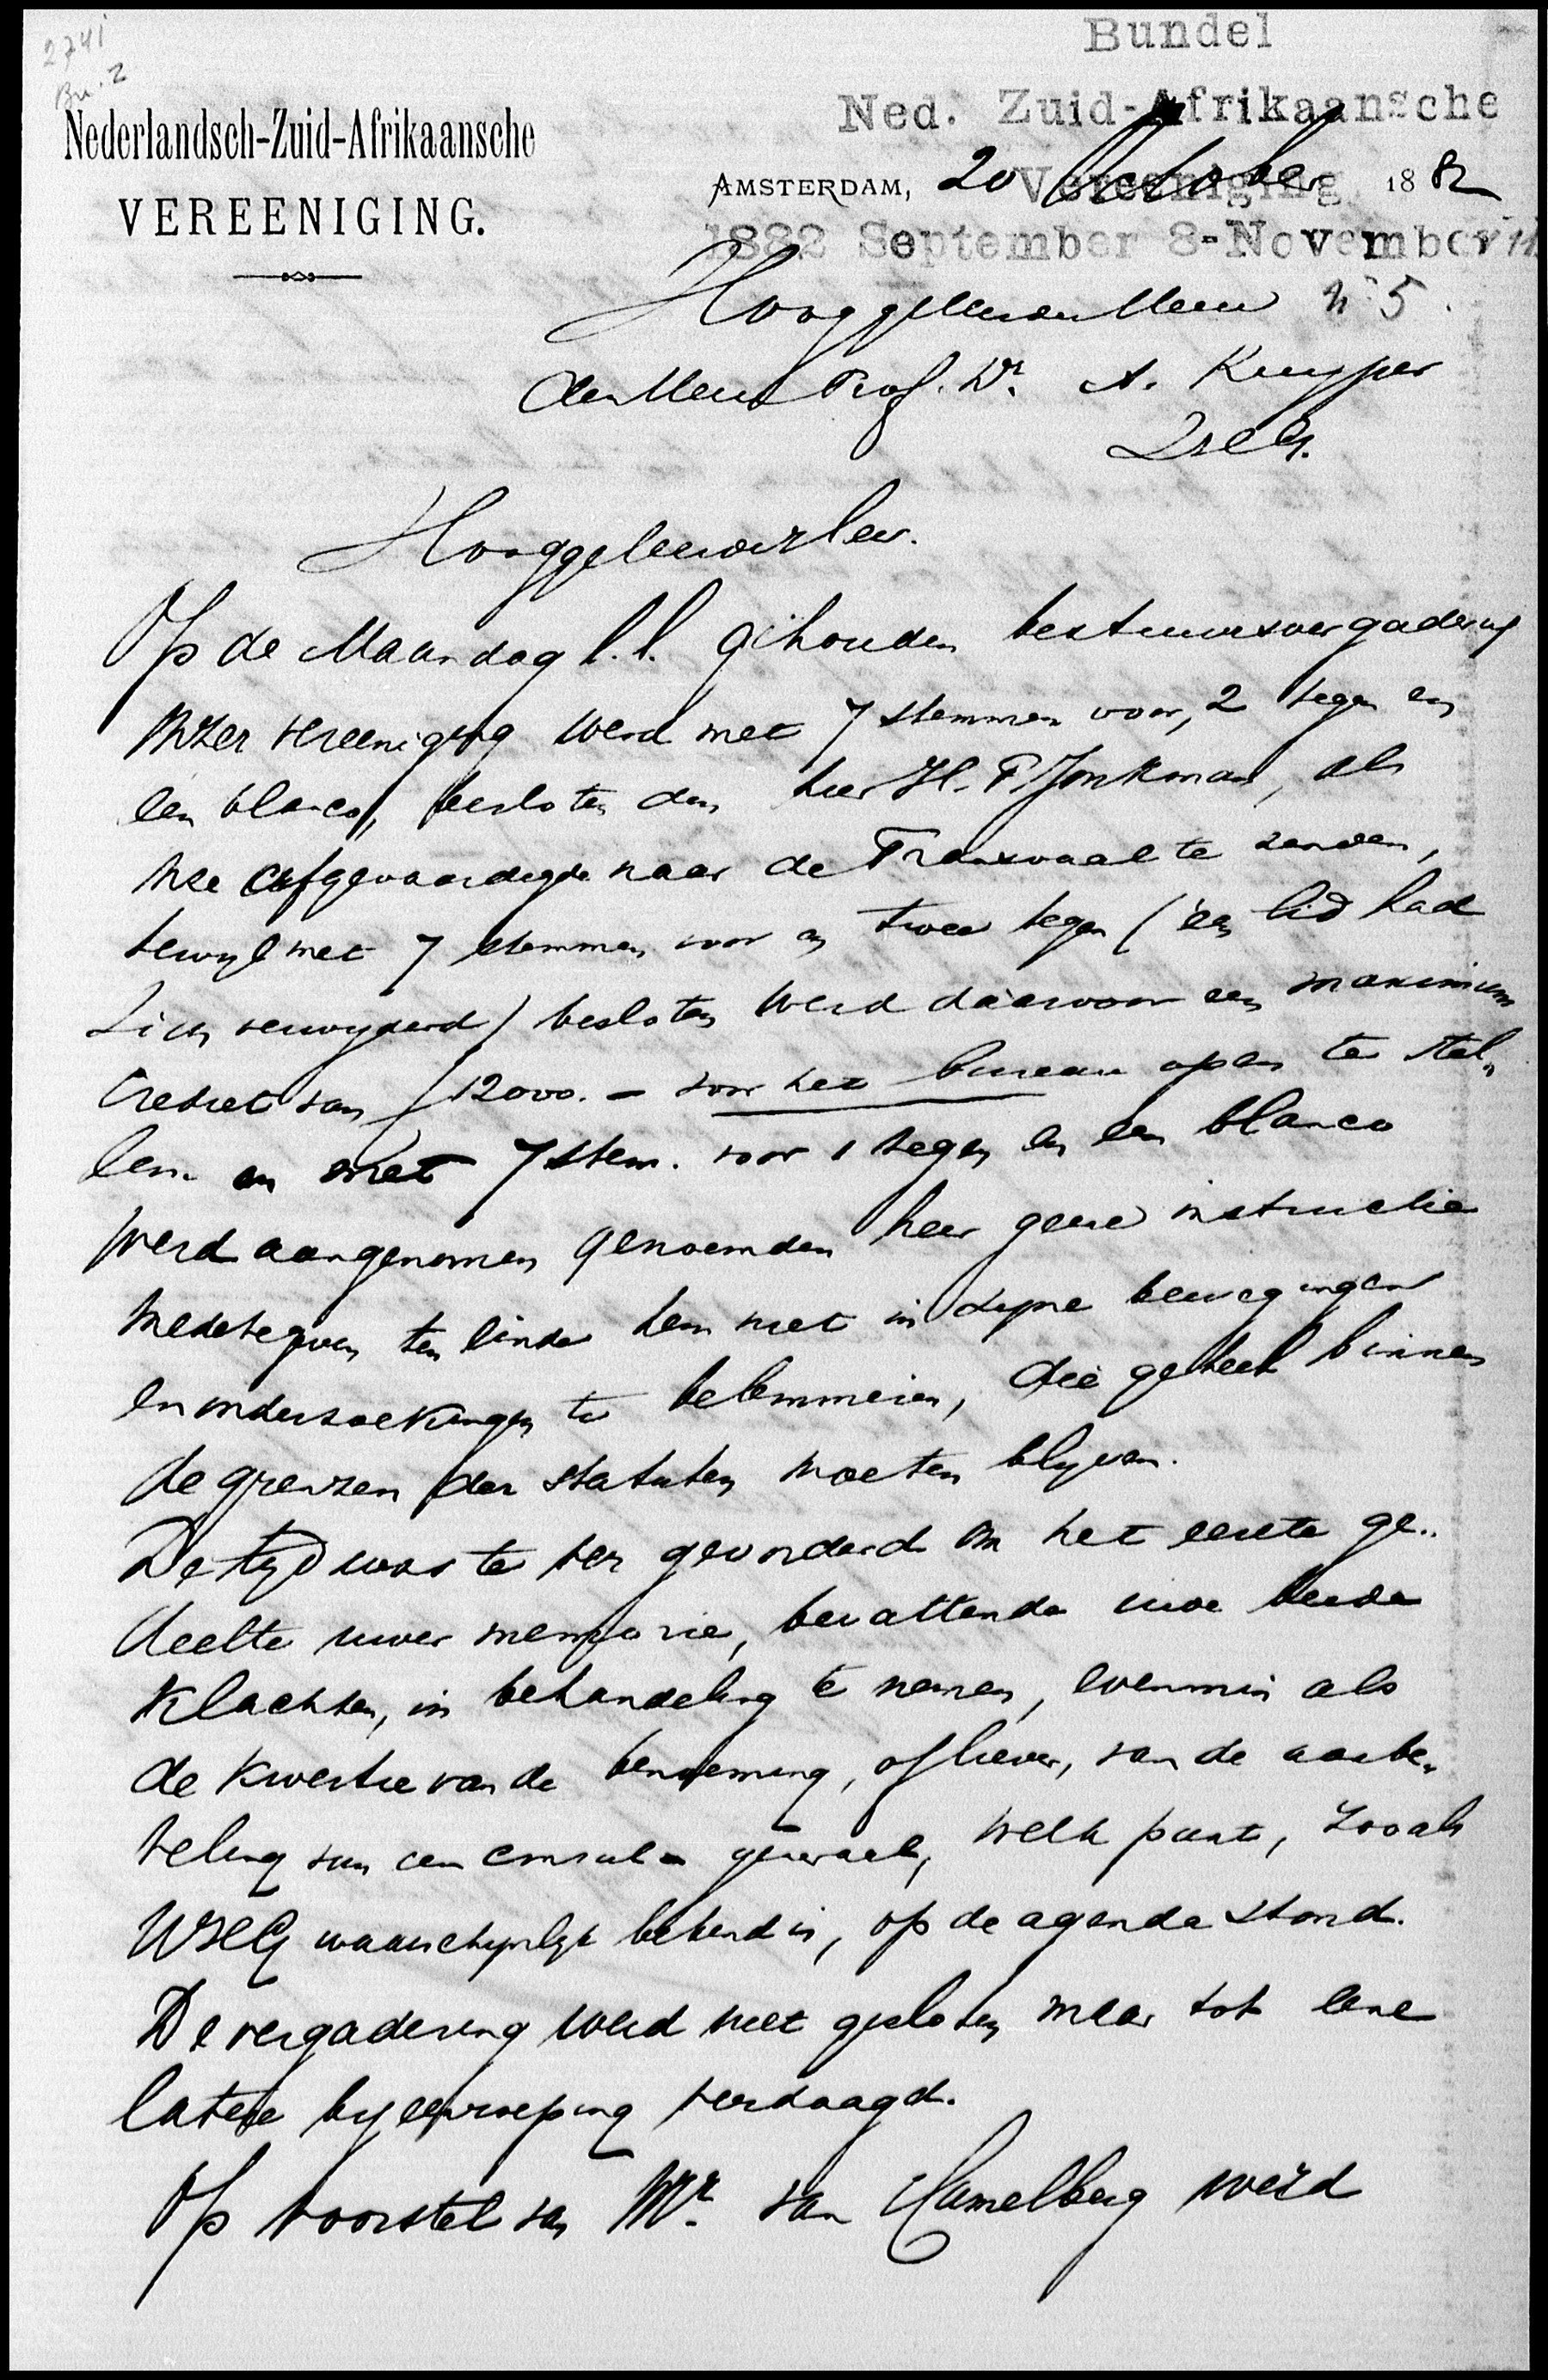 2741
Bu. 2
Bundel
Ned. Zuid-Afrikaansche
Vereeniging
1882 September 8-November
Nederlandsch-Zuid-Afrikaansche
VEREENIGING.
AMSTERDAM, 20 October 1882
Hooggeleerden Heer
n° 5.
den Heer Prof. Dr. A. Kuyper
Hooggeleerde Heer.
Op de Maandag l.l. gehouden bestuursvergadering
onzer vereeniging werd met 7 stemmen voor, 2 tegen en
een blanco, besloten den heer H. F. Jonkman, als
onze afgevaardigde naar de Transvaal te zenden,
terwyl met 7 stemmen voor en twee tegen (een lid had
zich verwyderd) besloten werd daarvoor een maximum
crediet van ƒ 12000.- voor het bureau open te stel-
len. en met 7 stem. voor 1 tegen en een blanco
werd aangenomen genoemden heer geene instructie
medetegeven ten einde hem niet in zyne bewegingen
en onderzoekingen te belemmeren, die geheel binnen
de grenzen der statuten moeten blyven.
De tyd was te ver gevorderd om het eerste ge-
deelte uwer memorie, bevattende uwe beide
klachten, in behandeling te nemen, evenmin als
de kwestie van de benoeming, of liever, van de aanbe-
veling van een consul generaal, welk punt, zooals
UHG waarschynlyk bekend is, op de agenda stond.
De vergadering werd niet gesloten maar tot eene
latere byeenroeping verdaagd.
Op voorstel van Mr. van Hamelberg werd